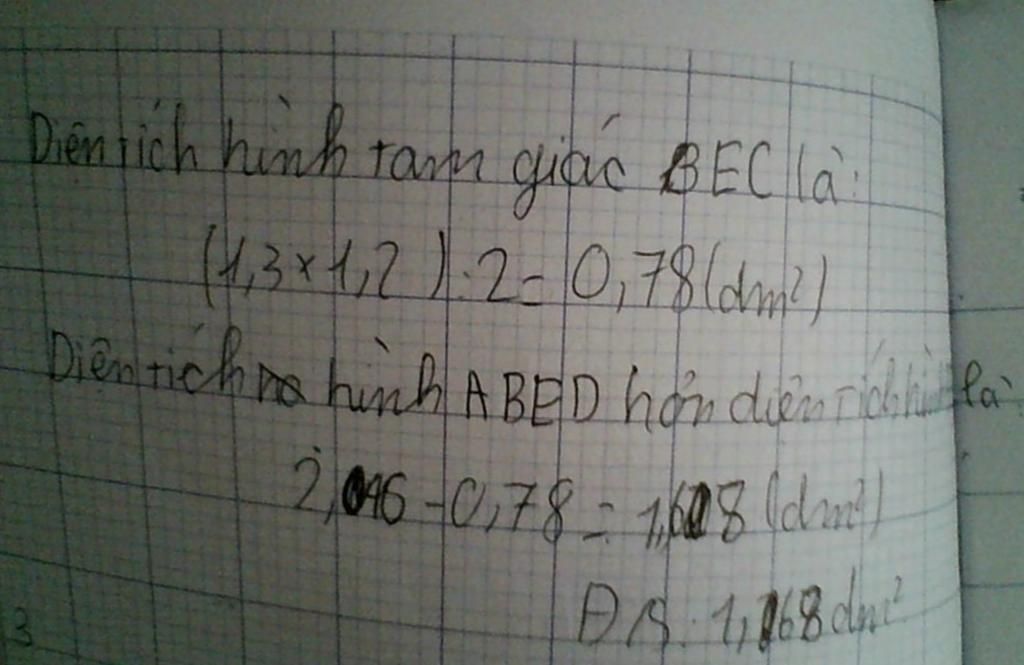 Diện tích hình tam giác BEC là:
(1,3 x 1,2) : 2 = 0,78 (dm²)
Diện tích hình ABED hơn diện tích hình là
2,46 - 0,78 = 1,68 (dm²)
ĐS: 1,68 dm²
3